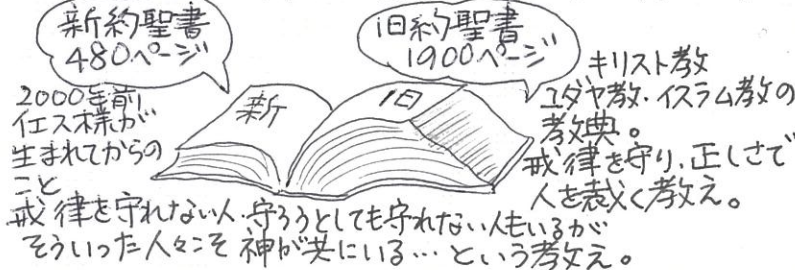 新約聖書
480ページ
旧約聖書
1900ページ
新
旧
2000年前
イエス様が
生まれてからの
こと
キリスト教
ユダヤ教・イスラム教の
教典。
戒律を守り、正しさで
人を裁く教え。
戒律を守れない人・守ろうとしても守れない人もいるが
そういった人々こそ神が共にいる…という教え。